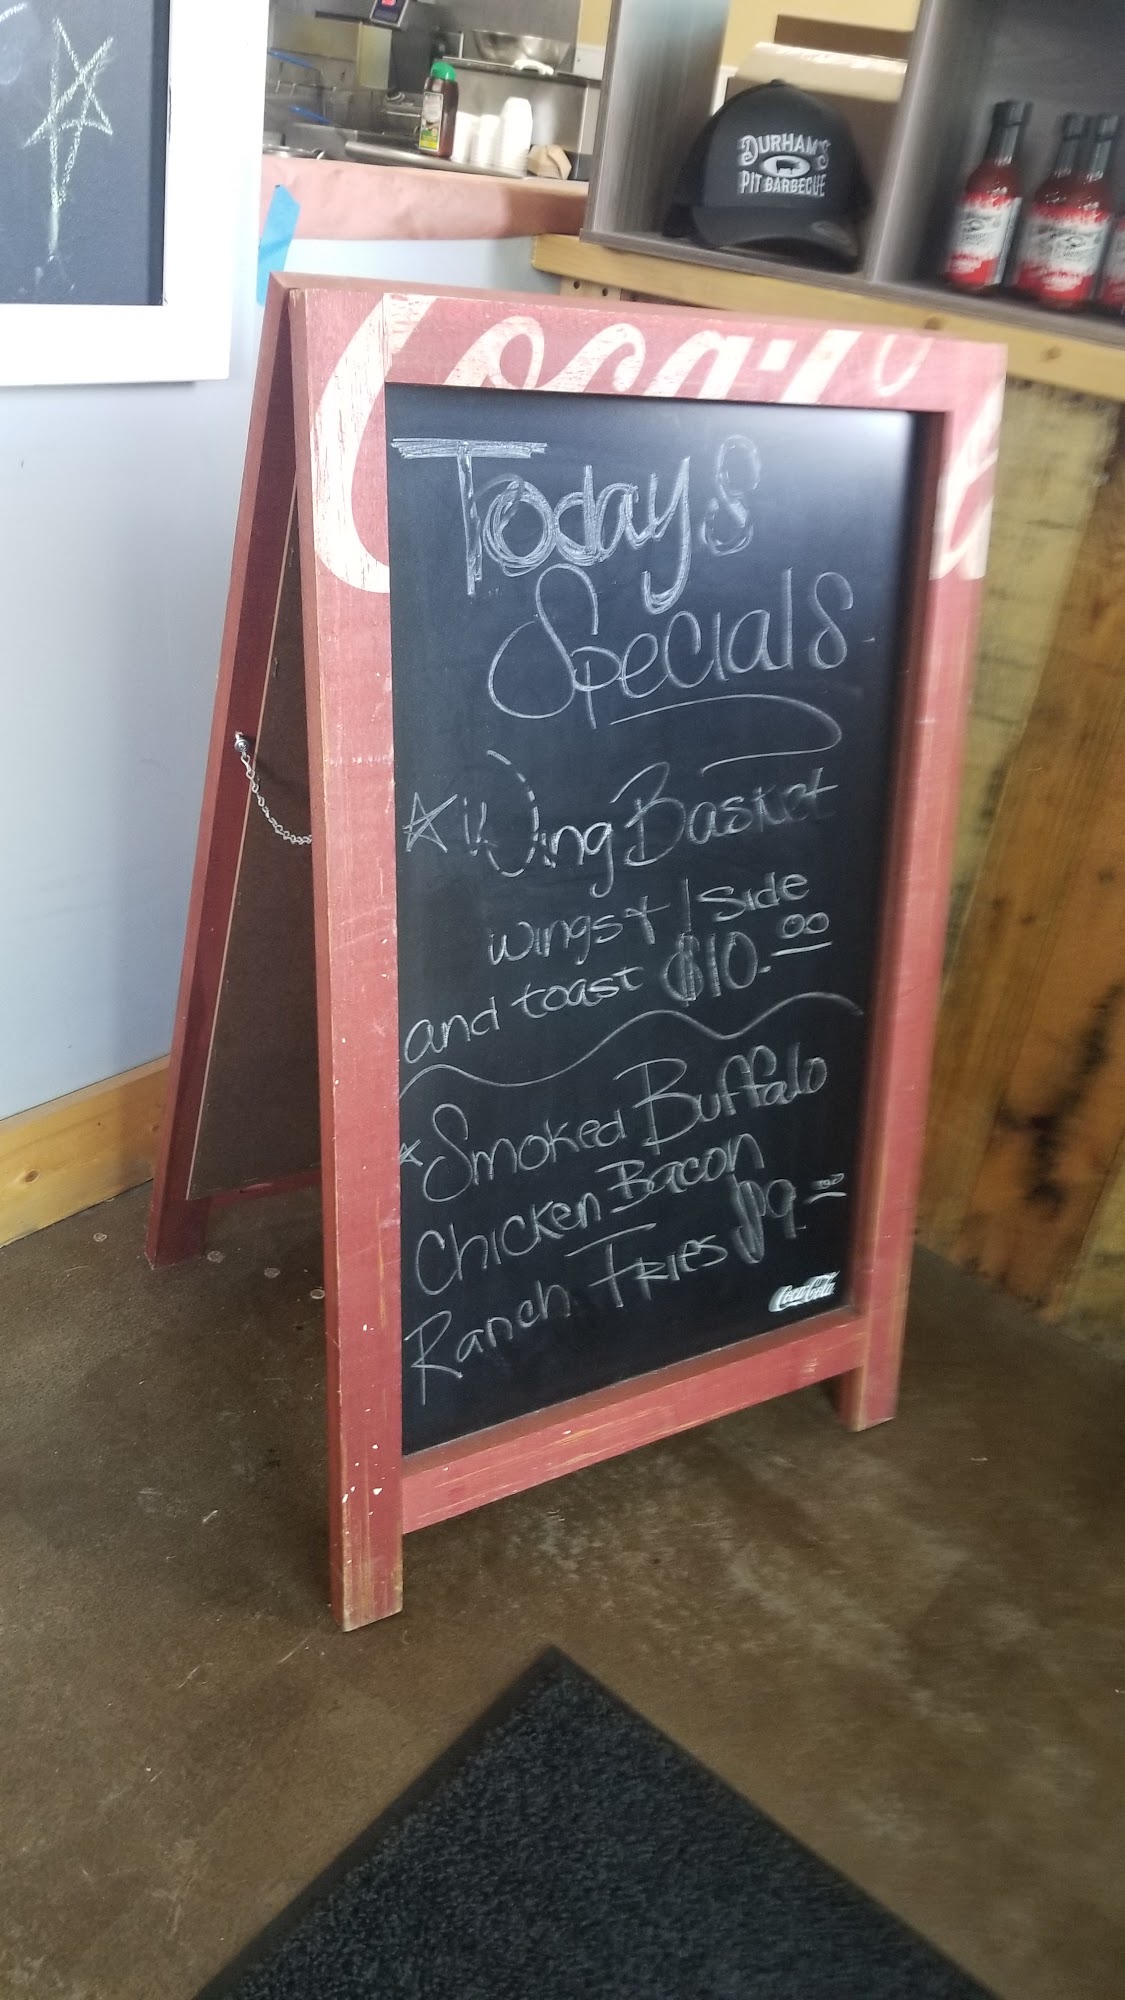 DURHAM'S
PIT BARBECUE
Coca-Co
Todays
Specials
Wing Basket
wings + 1 side
and toast $10.00
Smoked Buffalo
Chicken Bacon
Ranch Fries $9.00
Coca-Cola